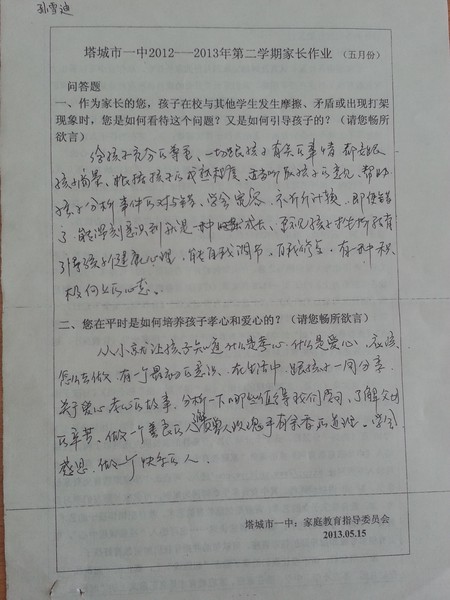 孙雪迪
塔城市一中2012----2013年第二学期家长作业 (五月份)
问答题
一、作为家长的您，孩子在校与其他学生发生摩擦、矛盾或出现打架
现象时，您是如何看待这个问题？又是如何引导孩子的？（请您畅所
欲言）
给孩子充分的尊重、一切跟孩子有关的事情都跟
孩子商量、根据孩子的成熟程度、适当听取孩子的意见，帮助
孩子分析事件的对与错，学会宽容、不斤斤计较，即使错
了，能深刻意识到就是一种成长、
引导孩子健康心理，能自我调节，自我修复，有一种积
极向上的心态。
二、您在平时是如何培养孩子孝心和爱心的？（请您畅所欲言）
从小就让孩子知道什么是孝心，什么是爱心，应该
怎么去做，有一个最初的意识，在生活中，跟孩子一同分享
关于爱心孝心的故事，分析一下哪些值得我们学习，了解父母
的辛苦、做一个善良的人，赠人玫瑰手有余香的道理。学会
感恩，做一个快乐的人。
塔城市一中：家庭教育指导委员会
2013.05.15